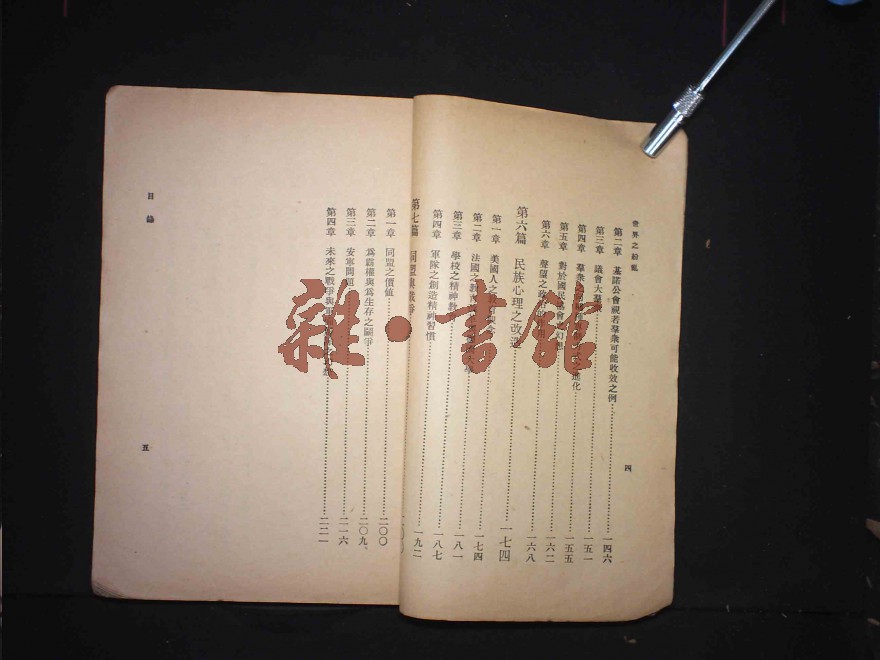 世界之紛亂
第二章 基諾公會視若羣衆可能收效之例 一四六
第三章 議會大羣衆 一五一
第四章 羣衆 進化 一五五
第五章 對於國民 會 一六二
第六章 聲望之 一六八
第六篇 民族心理之改造 一七四
第一章 美國人之教育觀念 一七四
第二章 法國之教 大學 一八一
第三章 學校之精神教 一八七
第四章 軍隊之創造精神習慣 一九二
四
第七篇 同盟與戰爭
第一章 同盟之價値 二〇〇
第二章 爲霸權與爲生存之鬭爭 二〇九
第三章 安寧問題 二一六
第四章 未來之戰爭與 二二一
目錄
五
雜·書館